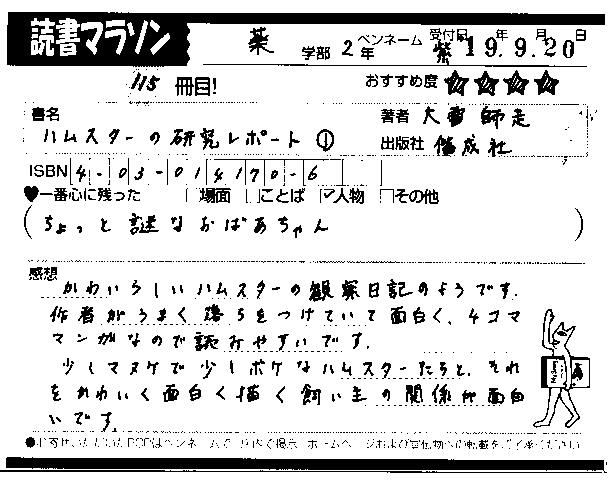 読書マラソン 薬 学部 2年 ペンネーム 紫 受付日 '19年9月20日
115 冊目! おすすめ度 ★★★★
書名 著者 大雪 師走
ハムスターの研究レポート ① 出版社 偕成社
ISBN 4-03-014170-6
♥一番心に残った □場面 □ことば ☑人物 □その他
(ちょっと謎なおばあちゃん)
感想
かわいらしいハムスターの観察日記のようです。
作者がうまく落ちをつけていて面白く、4コマ
マンガなので読みやすいです。
少しマヌケで少しボケなハムスターたちと、それ
をかわいく面白く描く飼い主の関係が面白
いです。